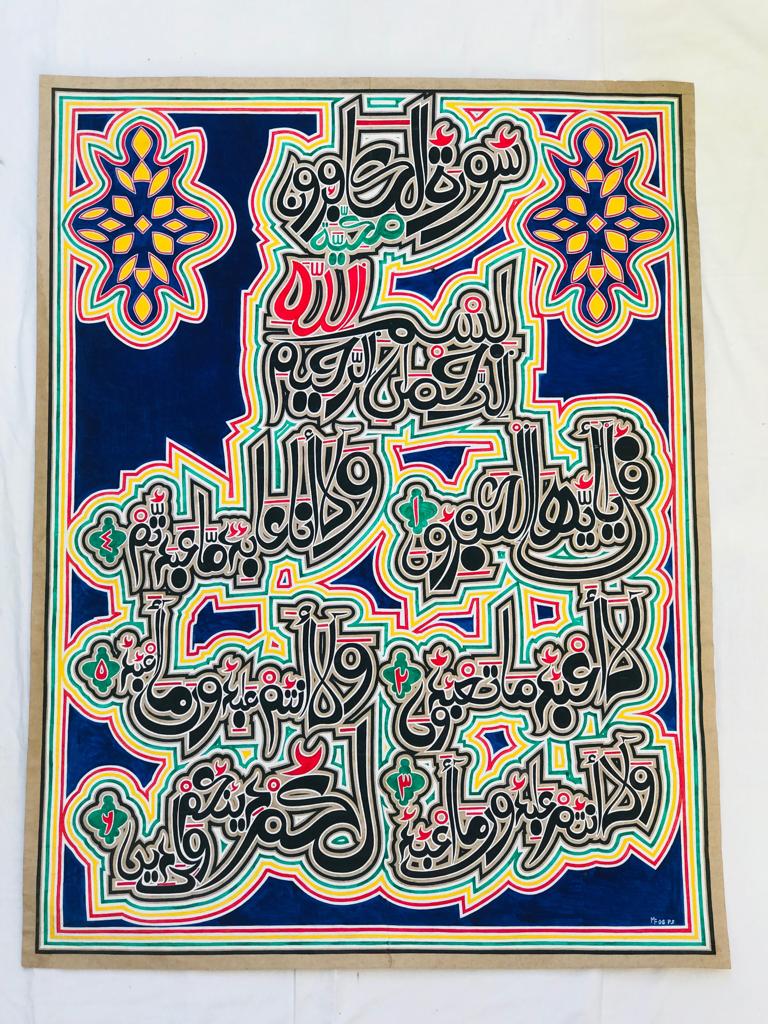 سورة الكافرون
مكية
بسم الله
الرحمن الرحيم
قل يأيها الكفرون ١
لا أعبد ما تعبدون ٢
ولا أنتم عبدون ما أعبد ٣
ولا أنا عابد ما عبدتم ٤
ولا أنتم عبدون ما أعبد ٥
لكم دينكم ولي دين ٦